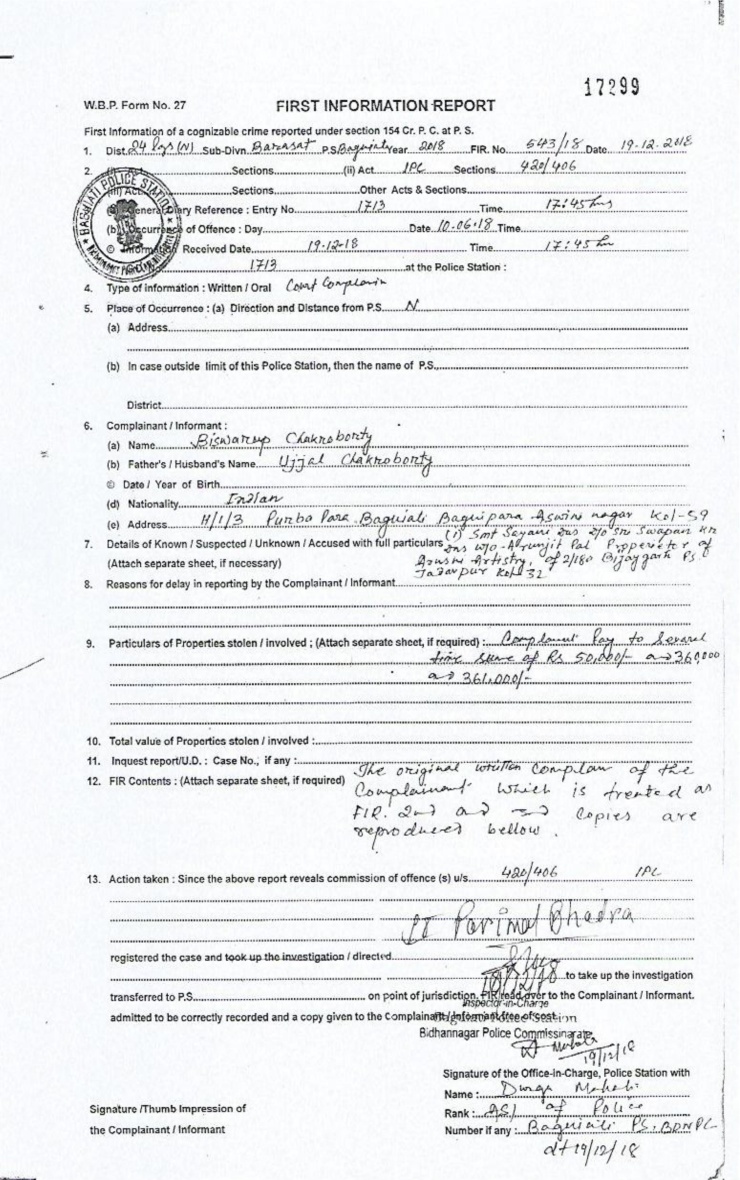 17299
W.B.P. Form No. 27
FIRST INFORMATION REPORT
First Information of a cognizable crime reported under section 154 Cr. P. C. at P. S.
1. Dist. 24 Pgs (N) Sub-Divn. Barasat P.S. Baguiati Year 2018 FIR. No. 543/18 Date 19.12.2018
2. Sections (ii) Act IPC Sections 420/406
(iii) Act Sections Other Acts & Sections
(a) General Diary Reference : Entry No. 1713 Time 17:45 hrs
(b) Occurrence of Offence : Day Date 10.06.18 Time
© Information Received Date 19.12.18 Time 17:45 hr
1713 at the Police Station :
BAGUIATI POLICE STATION
4. Type of information : Written / Oral Court Complain
5. Place of Occurrence : (a) Direction and Distance from P.S. N
(a) Address
(b) In case outside limit of this Police Station, then the name of P.S.
District
6. Complainant / Informant :
(a) Name Biswarup Chakroborty
(b) Father's / Husband's Name Ujjal Chakroborty
© Date / Year of Birth
(d) Nationality Indian
(e) Address H/1/3 Purba Para Baguiati Baguipara Aswini nagar Kol-59
7. Details of Known / Suspected / Unknown / Accused with full particulars (1) Smt Sayani Das D/o Sri Swapan Kr
(Attach separate sheet, if necessary) Das W/o of 2/180 Bijaygarh PS
Jadavpur Kol 32
8. Reasons for delay in reporting by the Complainant / Informant
9. Particulars of Properties stolen / involved ; (Attach separate sheet, if required) : Complainant Pay to Several
time of Rs 50,000/- and 360,000
and 361,000/-
10. Total value of Properties stolen / involved :
11. Inquest report/U.D. : Case No., if any :
12. FIR Contents : (Attach separate sheet, if required) The original written complain of the
Complainant which is treated as
FIR. 2nd and 3rd Copies are
reproduced bellow.
13. Action taken : Since the above report reveals commission of offence (s) u/s. 420/406 IPC
Parimal Bhadra
registered the case and took up the investigation / directed
to take up the investigation
transferred to P.S. on point of jurisdiction. FIR read over to the Complainant / Informant.
Inspector-in-Charge
admitted to be correctly recorded and a copy given to the Complainant/Informant free of cost.
Baguiati Police Station
Bidhannagar Police Commissionerate
19/12/18
Signature of the Office-in-Charge, Police Station with
Name : Durga
Signature /Thumb Impression of
Rank : ASI of Police
the Complainant / Informant
Number if any : Baguiati PS. BDNPC
dt 19/12/18